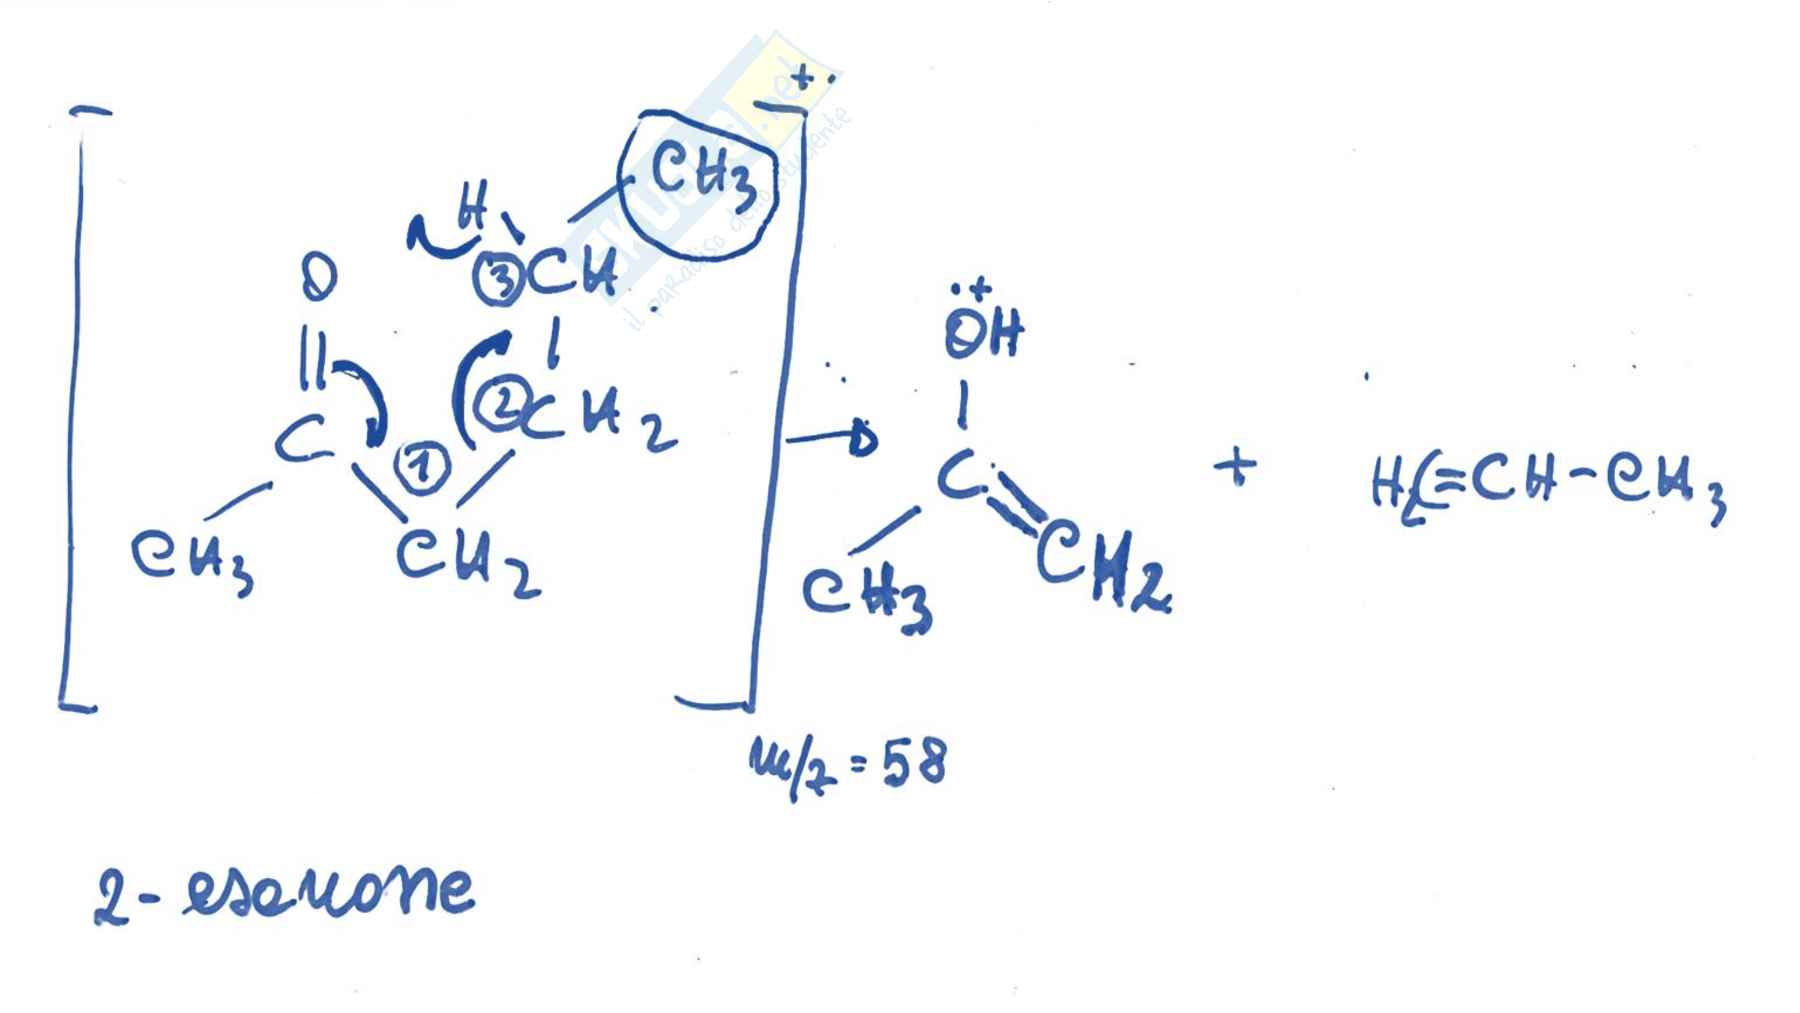 +·
CH3
H
O
③ CH
② CH2
C
①
CH3
CH2
··+
OH
C
CH3
CH2
+
H2C=CH-CH3
m/z = 58
2-esanone
SKUOLA.net
il paradiso dello studente